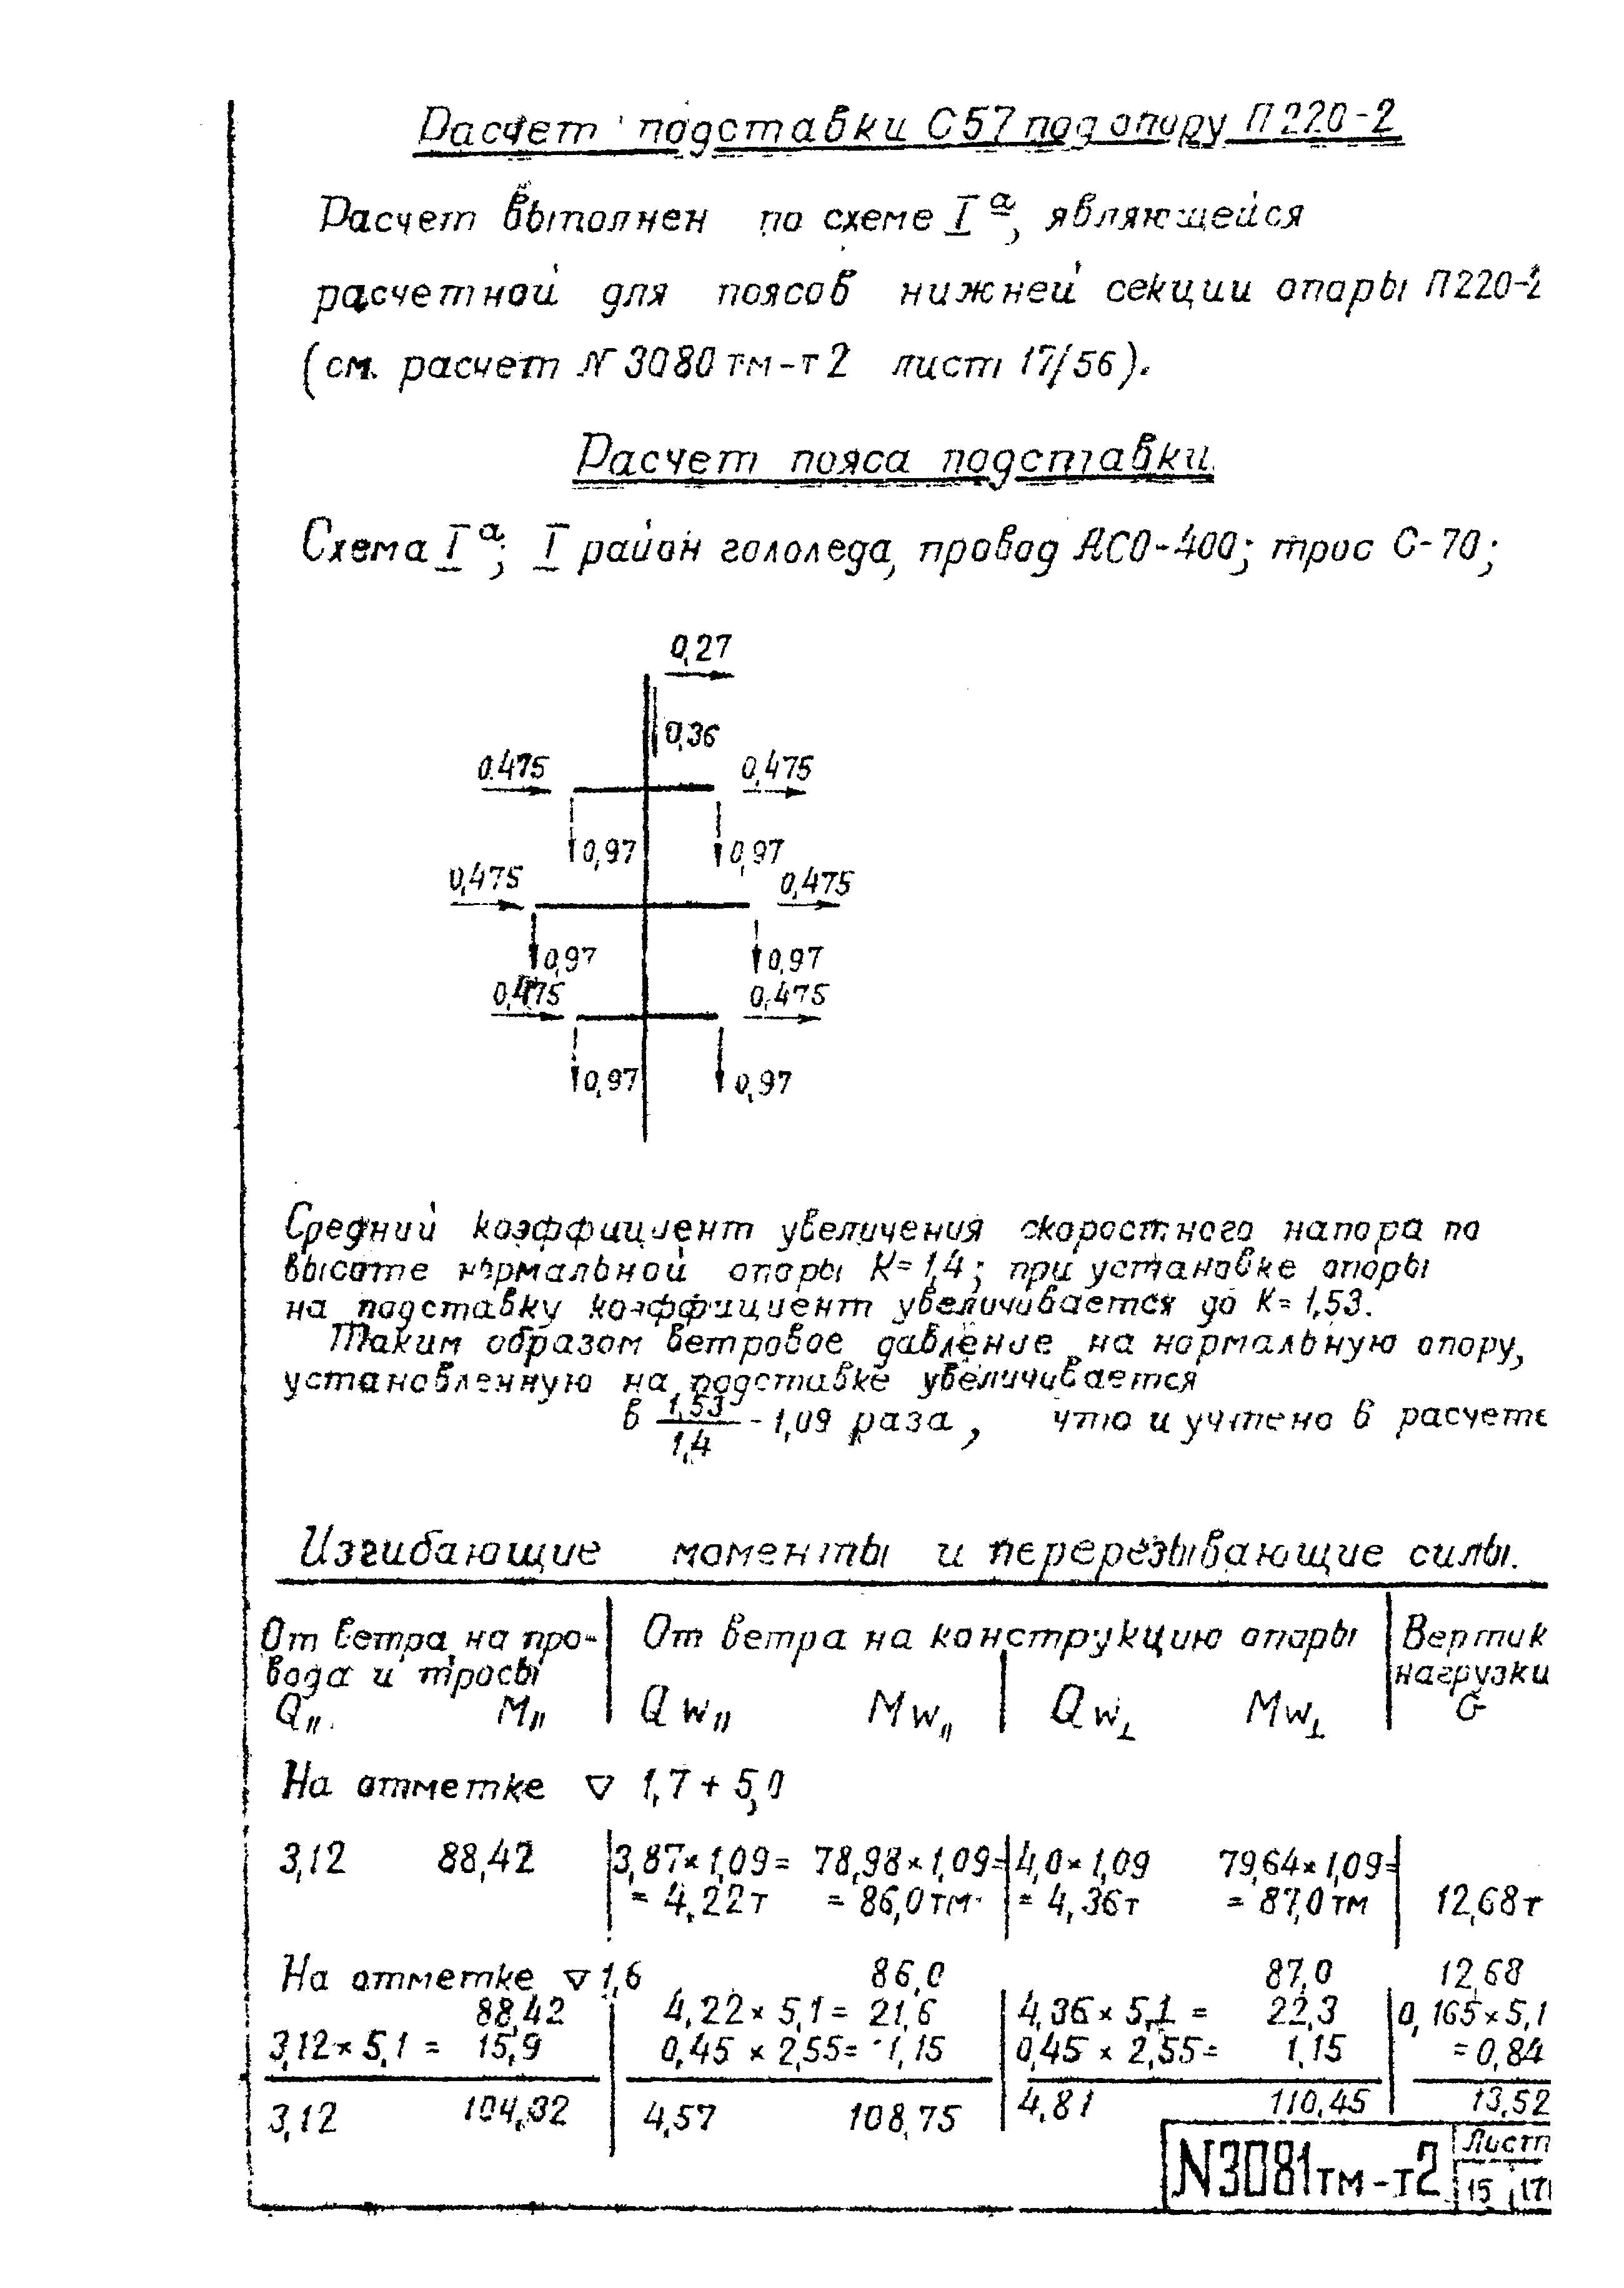 Расчет подставки С57 под опору П220-2
Расчет выполнен по схеме Iᵃ, являющейся
расчетной для поясов нижней секции опоры П220-2
(см. расчет № 3080тм-т2 лист 17/56).
Расчет пояса подставки
Схема Iᵃ; I район гололеда, провод АСО-400; трос С-70;
0,27
0,36
0.475 0,475
0,97 0,97
0,475 0,475
0,97 0,97
0,475 0,475
0,97 0,97
Средний коэффициент увеличения скоростного напора по
высоте нормальной опоры К=1,4; при установке опоры
на подставку коэффициент увеличивается до К=1,53.
Таким образом ветровое давление на нормальную опору,
установленную на подставке увеличивается
в 1,53/1,4 - 1,09 раза, что и учтено в расчете
Изгибающие моменты и перерезывающие силы.
От ветра на про- От ветра на конструкцию опоры Вертик
вода и тросы нагрузки
Q𝗅𝗅 M𝗅𝗅 Qw𝗅𝗅 Mw𝗅𝗅 Qw⊥ Mw⊥ G
На отметке ▽ 1,7 + 5,0
3,12 88,42 3,87×1,09= 78,98×1,09= 4,0×1,09 79,64×1,09=
= 4,22т = 86,0тм = 4,36т = 87,0тм 12,68т
На отметке ▽1,6 86,0 87,0 12,68
88,42 4,22×5,1= 21,6 4,36×5,1= 22,3 0,165×5,1
3,12×5,1= 15,9 0,45×2,55= 1,15 0,45×2,55= 1,15 =0,84
3,12 104,32 4,57 108,75 4,81 110,45 13,52
N3081тм-т2 Лист
15